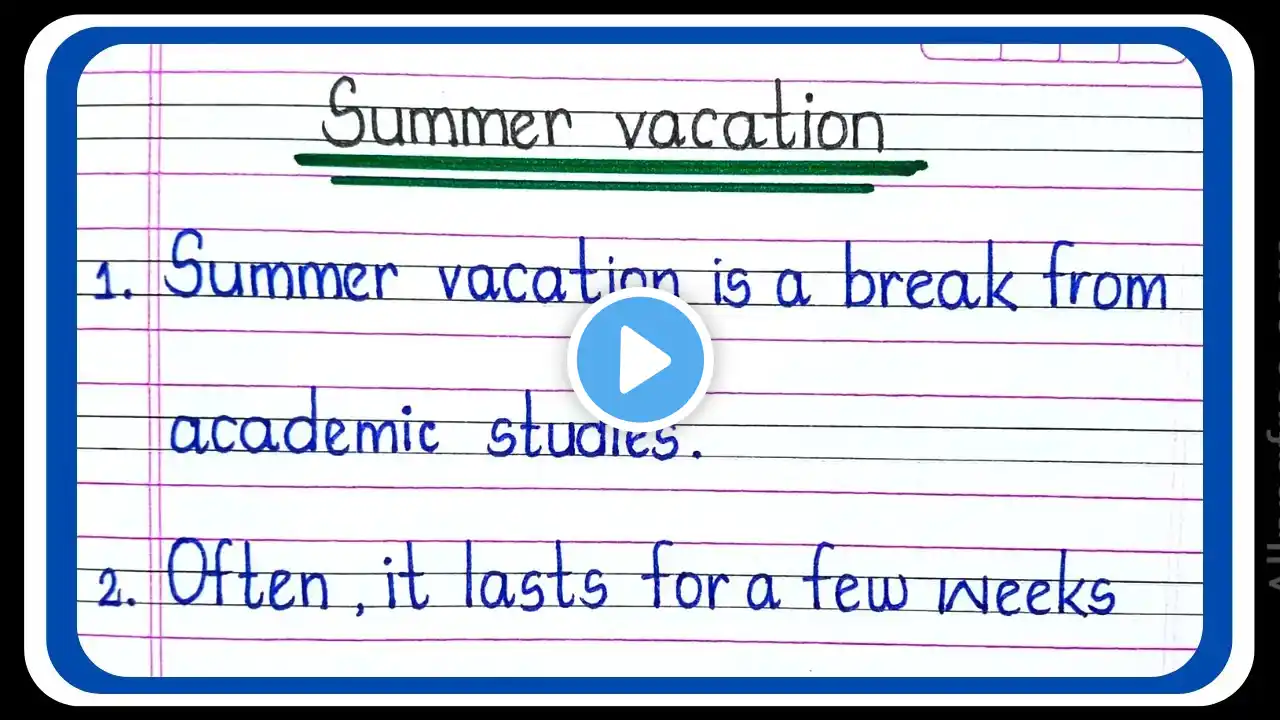 Summer vacation
1. Summer vacation is a break from
academic studies.
2. Often, it lasts for a few weeks